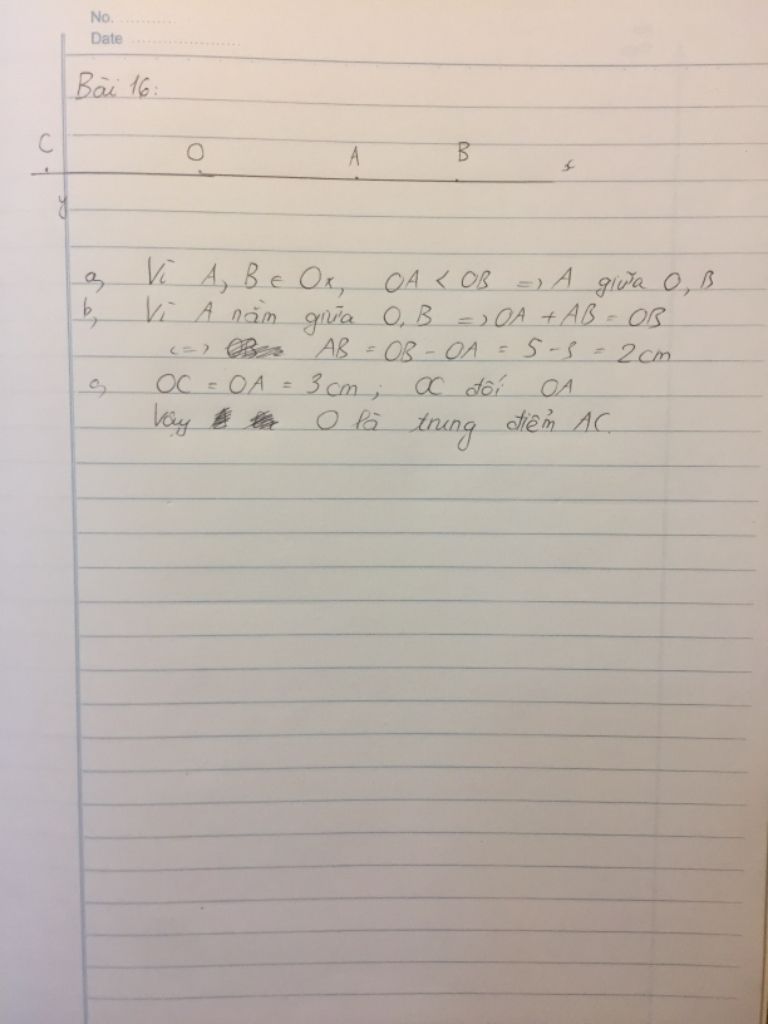 No. ............
Date ......................
Bài 16:
C O A B x
y
a, Vì A, B ∈ Ox, OA < OB => A giữa O, B
b, Vì A nằm giữa O, B => OA + AB = OB
<=> AB = OB - OA = 5 - 3 = 2 cm
c, OC = OA = 3 cm ; OC đối OA
Vậy O là trung điểm AC.